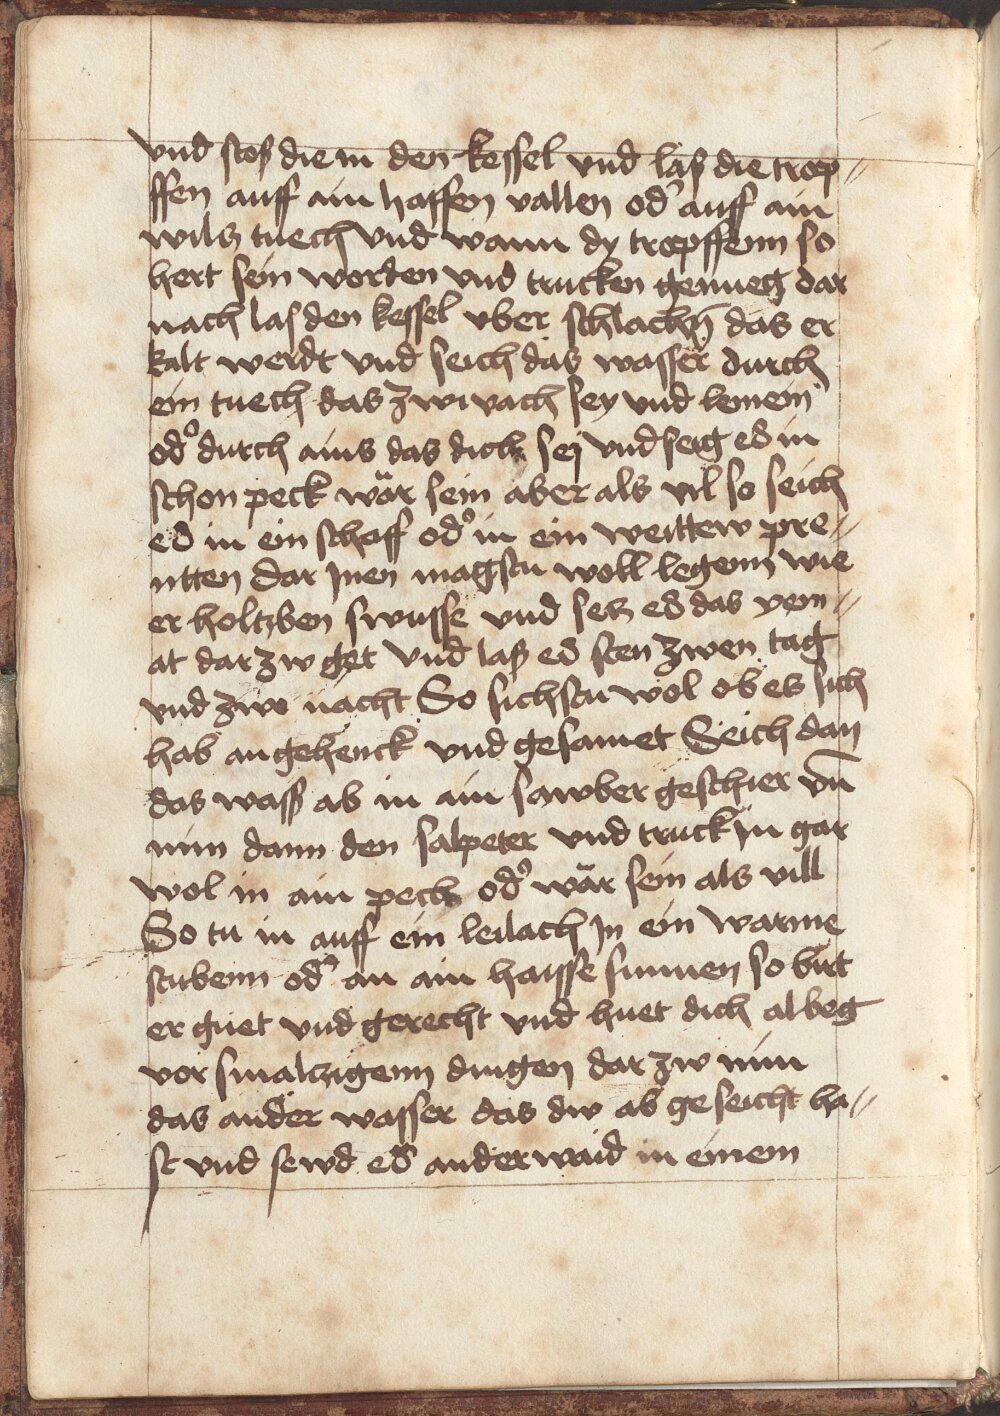 vnd stoß die in den kessel vnd laß die trop//
ffen auff ain haffen vallen od' auff ain
wilß tuech vnd wann dy tropffenn so
hert sein worden vnd trucken genueg dar
nach laß den kessel vber schlachn̄ das er
kalt werdt vnd seich das wasser durch
ein tuech das zwivach sey vnd lemein
od' durch ains das dick sej vnd seig es in
schon peck wär sein aber als vil so seich
es in ein schaff od' in ein weittew pre//
ntten dar Jnen magstu woll legenn wie
er holtzben swusse vnd setz es das yem//
at dar zw get vnd laß es sten zwen tag
vnd zwo nacht So sichstu wol ob es sich
hab angehenck vnd gesamet Seich dan
das wass ab in ain sawber geschier vn̄
nim dann den salpeter vnd truck jn gar
wol in ain peck od' wär sein als vill
So tu in auff ein leilach Jn ein warme
stubenn od' an ain haisse sunnen so birt
er guet vnd gerecht vnd huet dich albeg
vor smaltzigenn dingen dar zw nim
das ander wasser das dw ab geseicht ha//
st vnd sewd es anderwaid in einem